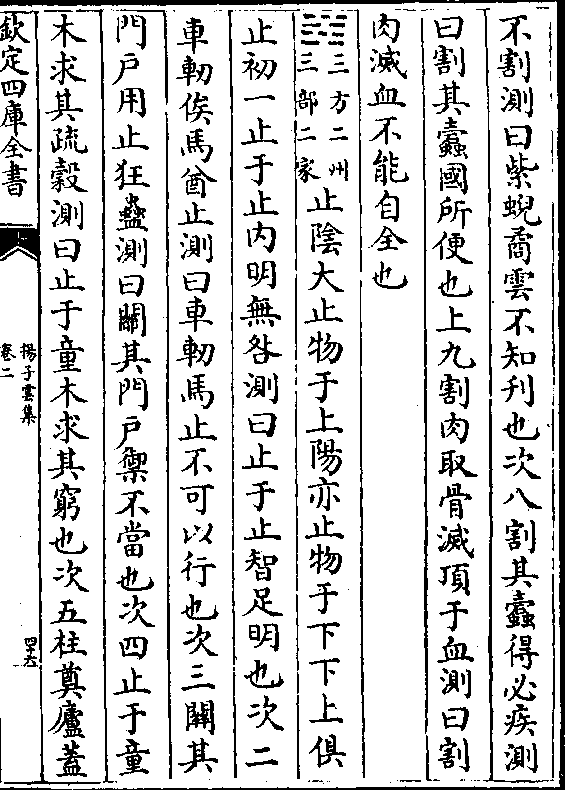 不割測曰紫蜺矞雲不知刋也次八割其蠹得必疾測
曰割其蠹國所便也上九割肉取骨滅頂于血測曰割
肉滅血不能自全也
三方二州
三部二家
止陰大止物于上陽亦止物于下下上俱
止初一止于止内明無咎測曰止于止智足明也次二
車軔俟馬酋止測曰車軔馬止不可以行也次三關其
門戸用止狂蠱測曰關其門戸禦不當也次四止于童
木求其疏穀測曰止于童木求其窮也次五柱奠廬蓋
欽定四庫全書
揚子雲集
卷二
四十六